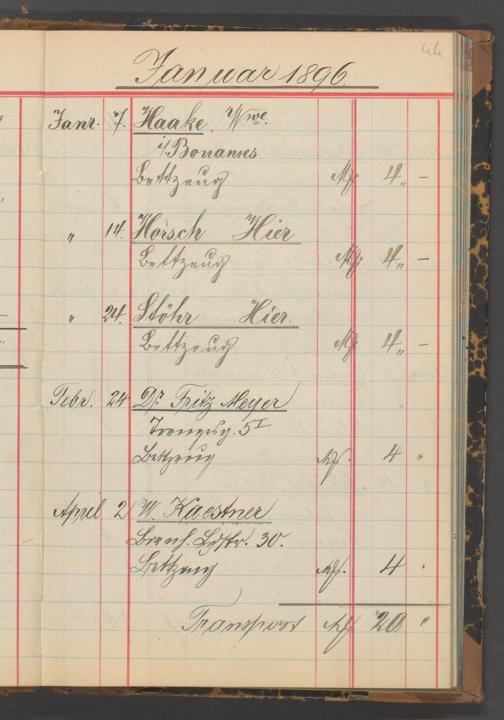 44
Januar 1896
Janr. 7. Haake, Wwe.
i/Bonames
Bettzeug Mk 4 „ –
„ 14. Horsch Hier
Bettzeug Mk 4 „ –
„ 24. Stöhr Hier.
Bettzeug Mk 4 „ –
Febr. 24 Dr. Fritz Meyer
5 I
Bettzeug Mk. 4 „
April 2 W. Kaestner
30.
Bettzeug Mk. 4 „
Transport Mk 20 „